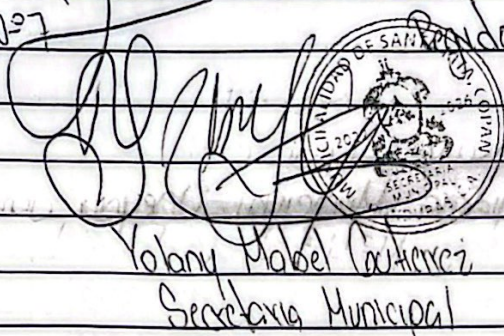 MUNICIPALIDAD DE SAN
COPAN
SECRETARIA
MUNICIPAL
HONDURAS C.A.
Yolany Mabel Gutierrez
Secretaria Municipal